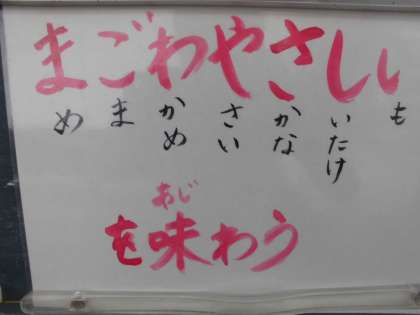 まごわやさしい
め
ま
かめ
さい
かな
いたけ
も
あじ
を味わう